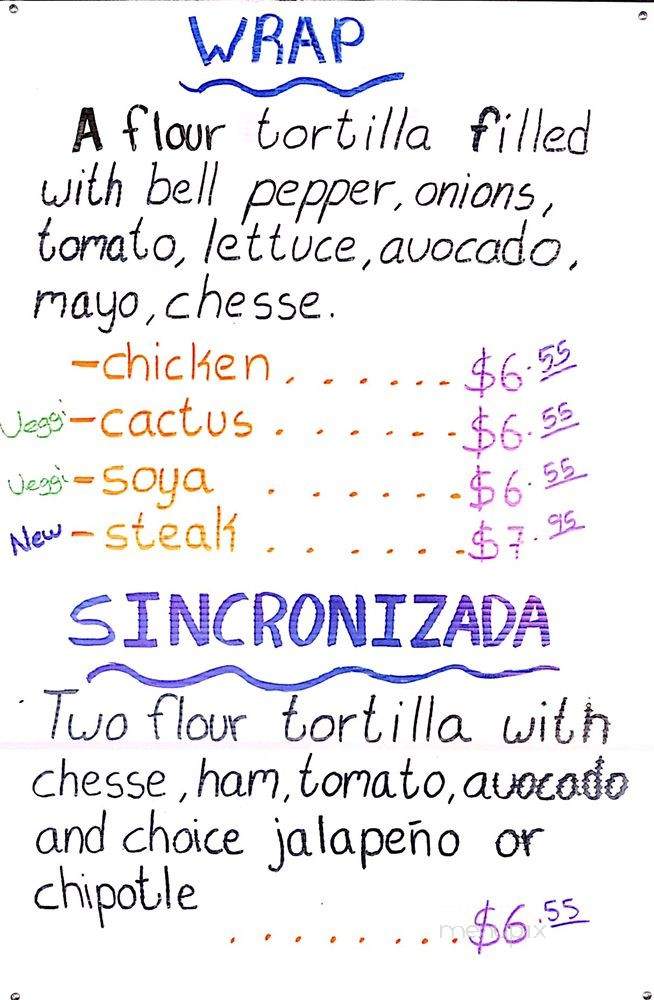 WRAP
A flour tortilla filled
with bell pepper, onions,
tomato, lettuce, avocado,
mayo, chesse.
-chicken. . . . . . . $6.55
Veggi -cactus . . . . . . $6.55
Veggi -soya . . . . . . $6.55
New - steak . . . . . . $7.95
SINCRONIZADA
Two flour tortilla with
chesse, ham, tomato, avocado
and choice jalapeño or
chipotle
. . . . . . . . $6.55
menupix